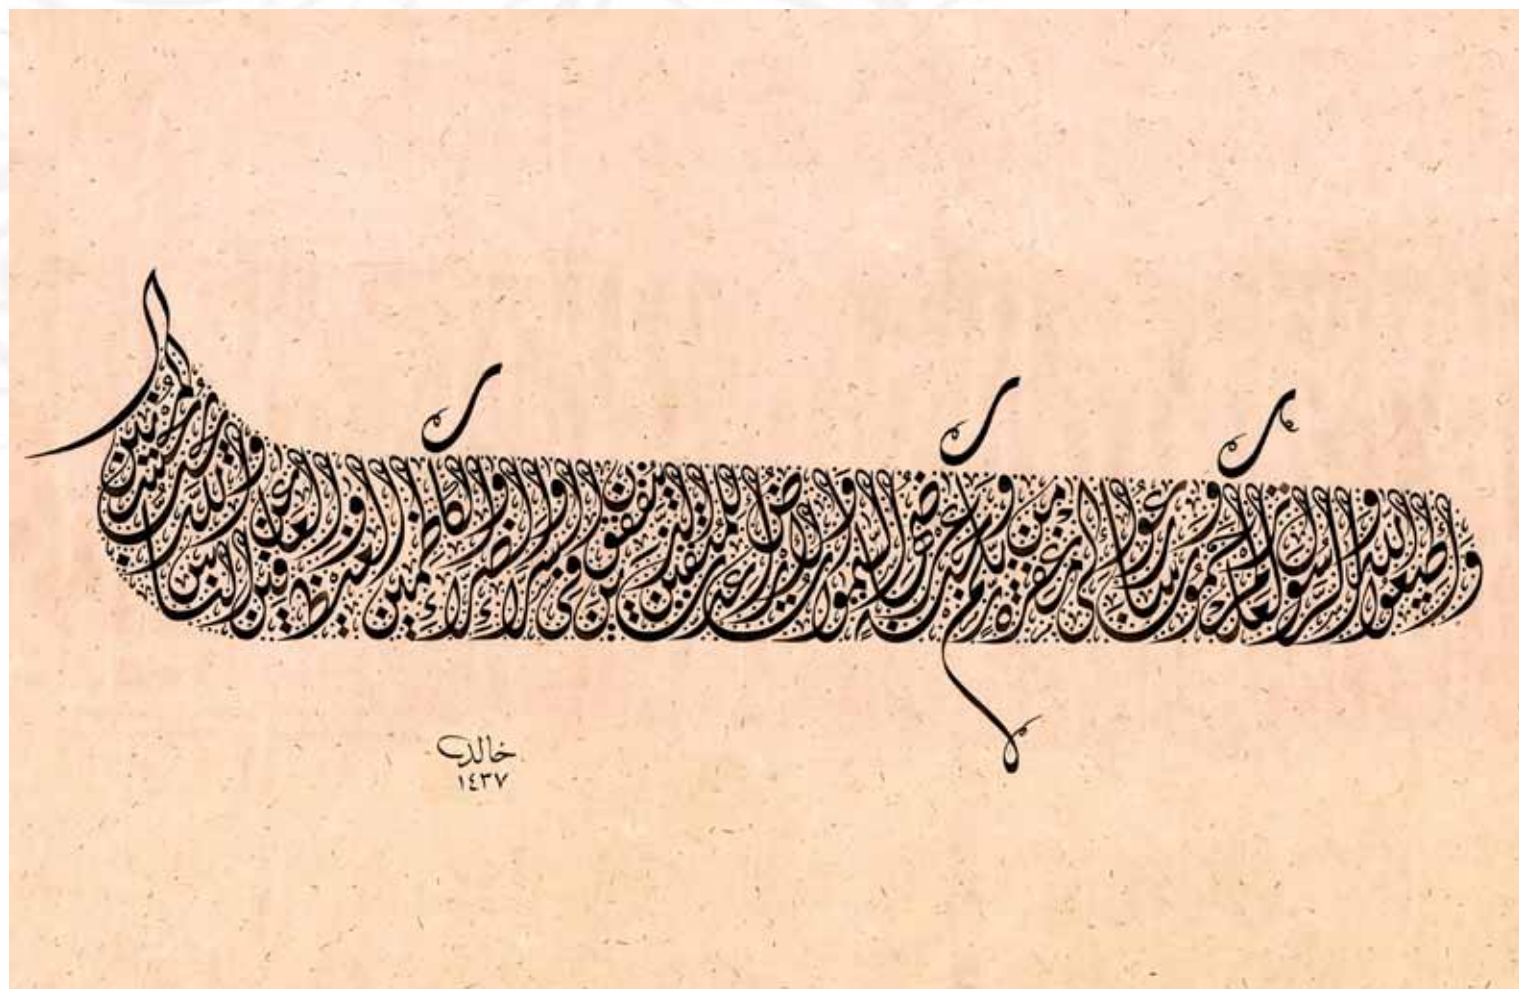 وأطيعوا الله والرسول لعلكم ترحمون وسارعوا إلى مغفرة من ربكم وجنة عرضها السموات والأرض أعدت للمتقين الذين ينفقون في السراء والضراء والكاظمين الغيظ والعافين عن الناس والله يحب المحسنين
خالد
١٤٣٧